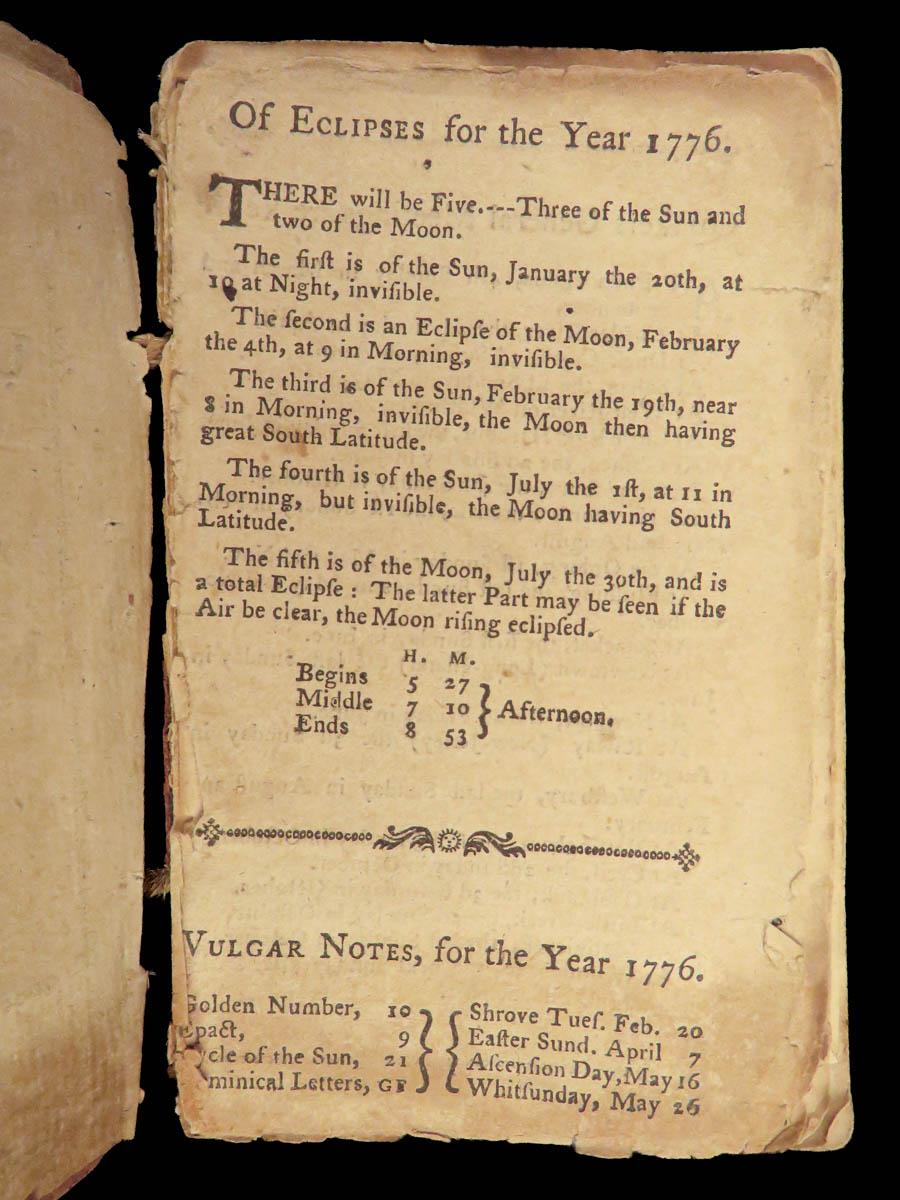 Of ECLIPSES for the Year 1776.
THERE will be Five.---Three of the Sun and
two of the Moon.
The firſt is of the Sun, January the 20th, at
10 at Night, inviſible.
The ſecond is an Eclipſe of the Moon, February
the 4th, at 9 in Morning, inviſible.
The third is of the Sun, February the 19th, near
8 in Morning, inviſible, the Moon then having
great South Latitude.
The fourth is of the Sun, July the 1ſt, at 11 in
Morning, but inviſible, the Moon having South
Latitude.
The fifth is of the Moon, July the 30th, and is
a total Eclipſe : The latter Part may be ſeen if the
Air be clear, the Moon riſing eclipſed.
H. M.
Begins 5 27
Middle 7 10 } Afternoon.
Ends 8 53
VULGAR NOTES, for the Year 1776.
Golden Number, 10 Shrove Tueſ. Feb. 20
Epact, 9 Eaſter Sund. April 7
ycle of the Sun, 21 Aſcenſion Day, May 16
minical Letters, GF Whitſunday, May 26